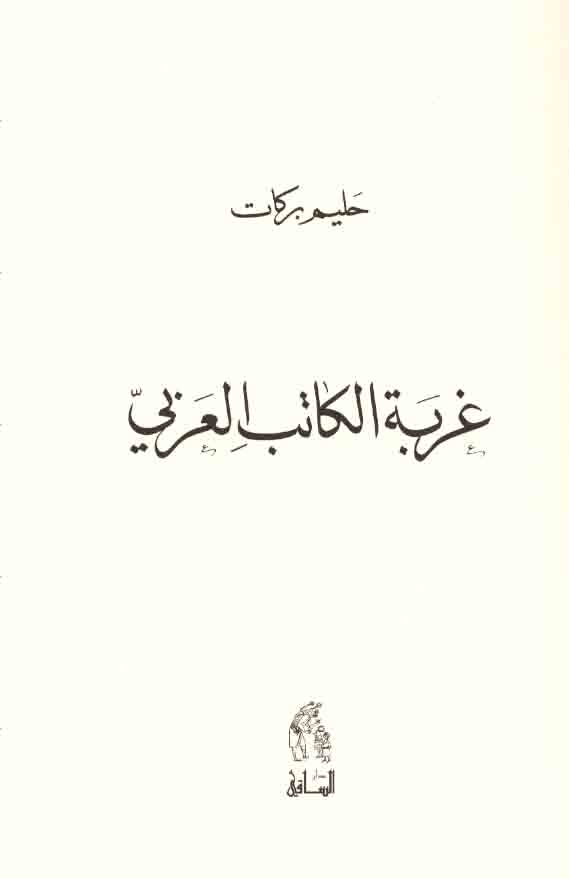 حليم بركات
غربة الكاتب العربيّ
دار
الساقي